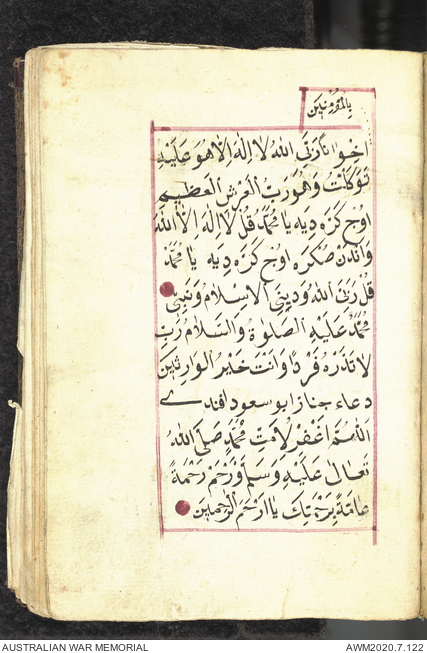 بِالْمُؤْمِنِينَ
اخوانا رَبِّيَ اللهُ لَا إِلٰهَ إِلَّا هُوَ عَلَيْهِ
تَوَكَّلْتُ وَهُوَ رَبُّ الْعَرْشِ الْعَظِيمِ
اوج كره ديه يا محمّد قل لا اله الا الله
واندن صكره اوج كره ديه يا محمّد
قل ربّى الله ودينى الاسلام ونبيّى
محمّد عليه الصلوة والسلام ربّ
لا تذره فردا وانت خير الوارثين
دعاء جناز ابو سعود افندى
اللهم اغفر لامت محمّد صلى الله
تعالى عليه وسلم وارحم رحمة
عامّة برحمتك يا ارحم الرحمين
AUSTRALIAN WAR MEMORIAL
AWM2020.7.122